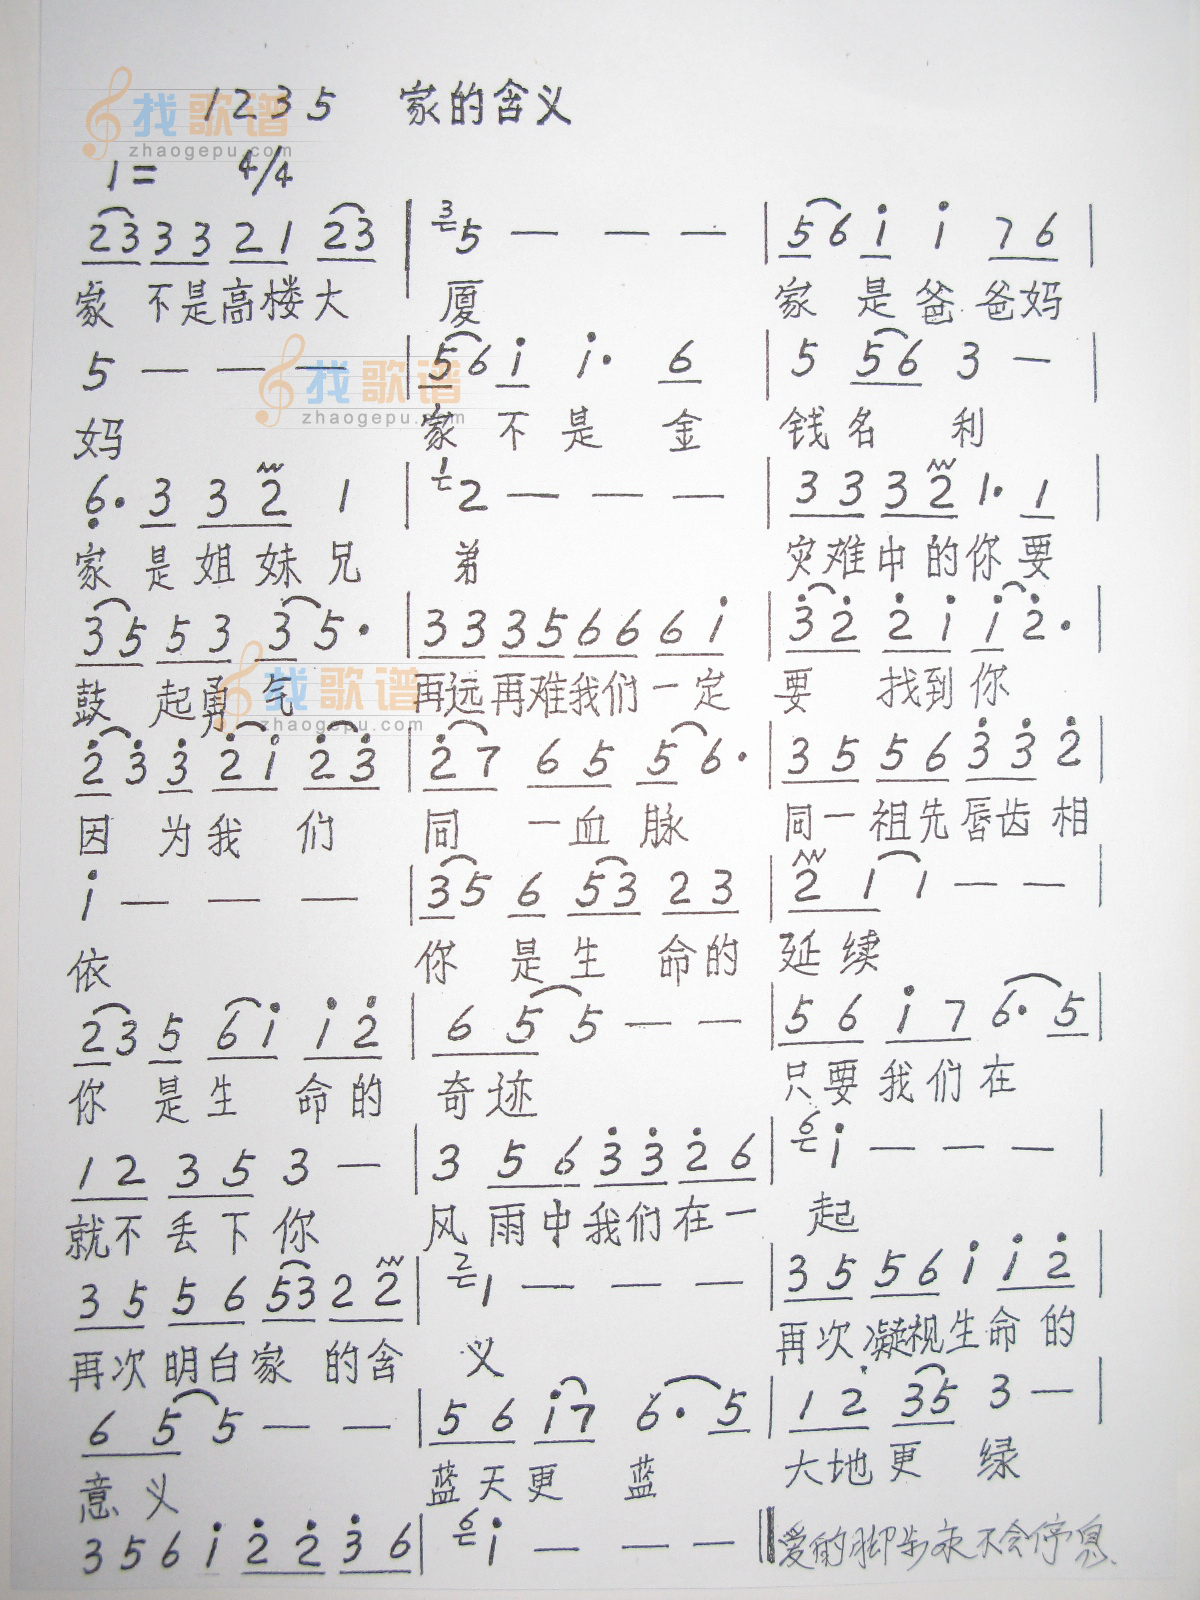 找歌谱
zhaogepu.com
1 2 3 5 家的含义
1= 4/4
2 3 3 3 2 1 2 3 | 3 5 — — — | 5 6 i i 7 6 |
家 不是高楼大 厦 家 是爸爸妈
5 — — — | 5 6 i i· 6 | 5 5 6 3 — |
找歌谱
zhaogepu.com
妈 家 不 是 金 钱名 利
6· 3 3 2 1 | 1 2 — — — | 3 3 3 2 1· 1 |
家 是 姐 妹 兄 弟 灾难中的你要
3 5 5 3 3 5· | 3 3 3 5 6 6 6 i | 3 2 2 i i 2· |
鼓 起勇 气 再远再难我们一定 要 找到你
找歌谱
zhaogepu.com
2 3 3 2 i 2 3 | 2 7 6 5 5 6· | 3 5 5 6 3 3 2 |
因 为我 们 同 一血 脉 同一祖先唇齿相
i — — — | 3 5 6 5 3 2 3 | 2 1 1 — — |
依 你 是生 命的 延续
2 3 5 6 i i 2 | 6 5 5 — — | 5 6 i 7 6· 5 |
你 是生 命的 奇迹 只要我们在
1 2 3 5 3 — | 3 5 6 3 3 2 6 | 6 i — — — |
就不丢下你 风雨中我们在一 起
3 5 5 6 5 3 2 2 | 2 1 — — — | 3 5 5 6 i i 2 |
再次明白家 的含 义 再次凝视生命的
6 5 5 — — | 5 6 i 7 6· 5 | 1 2 3 5 3 — |
意义 蓝天更 蓝 大地更 绿
3 5 6 i 2 2 3 6 | 6 i — — — ‖ 爱的脚步永不会停息